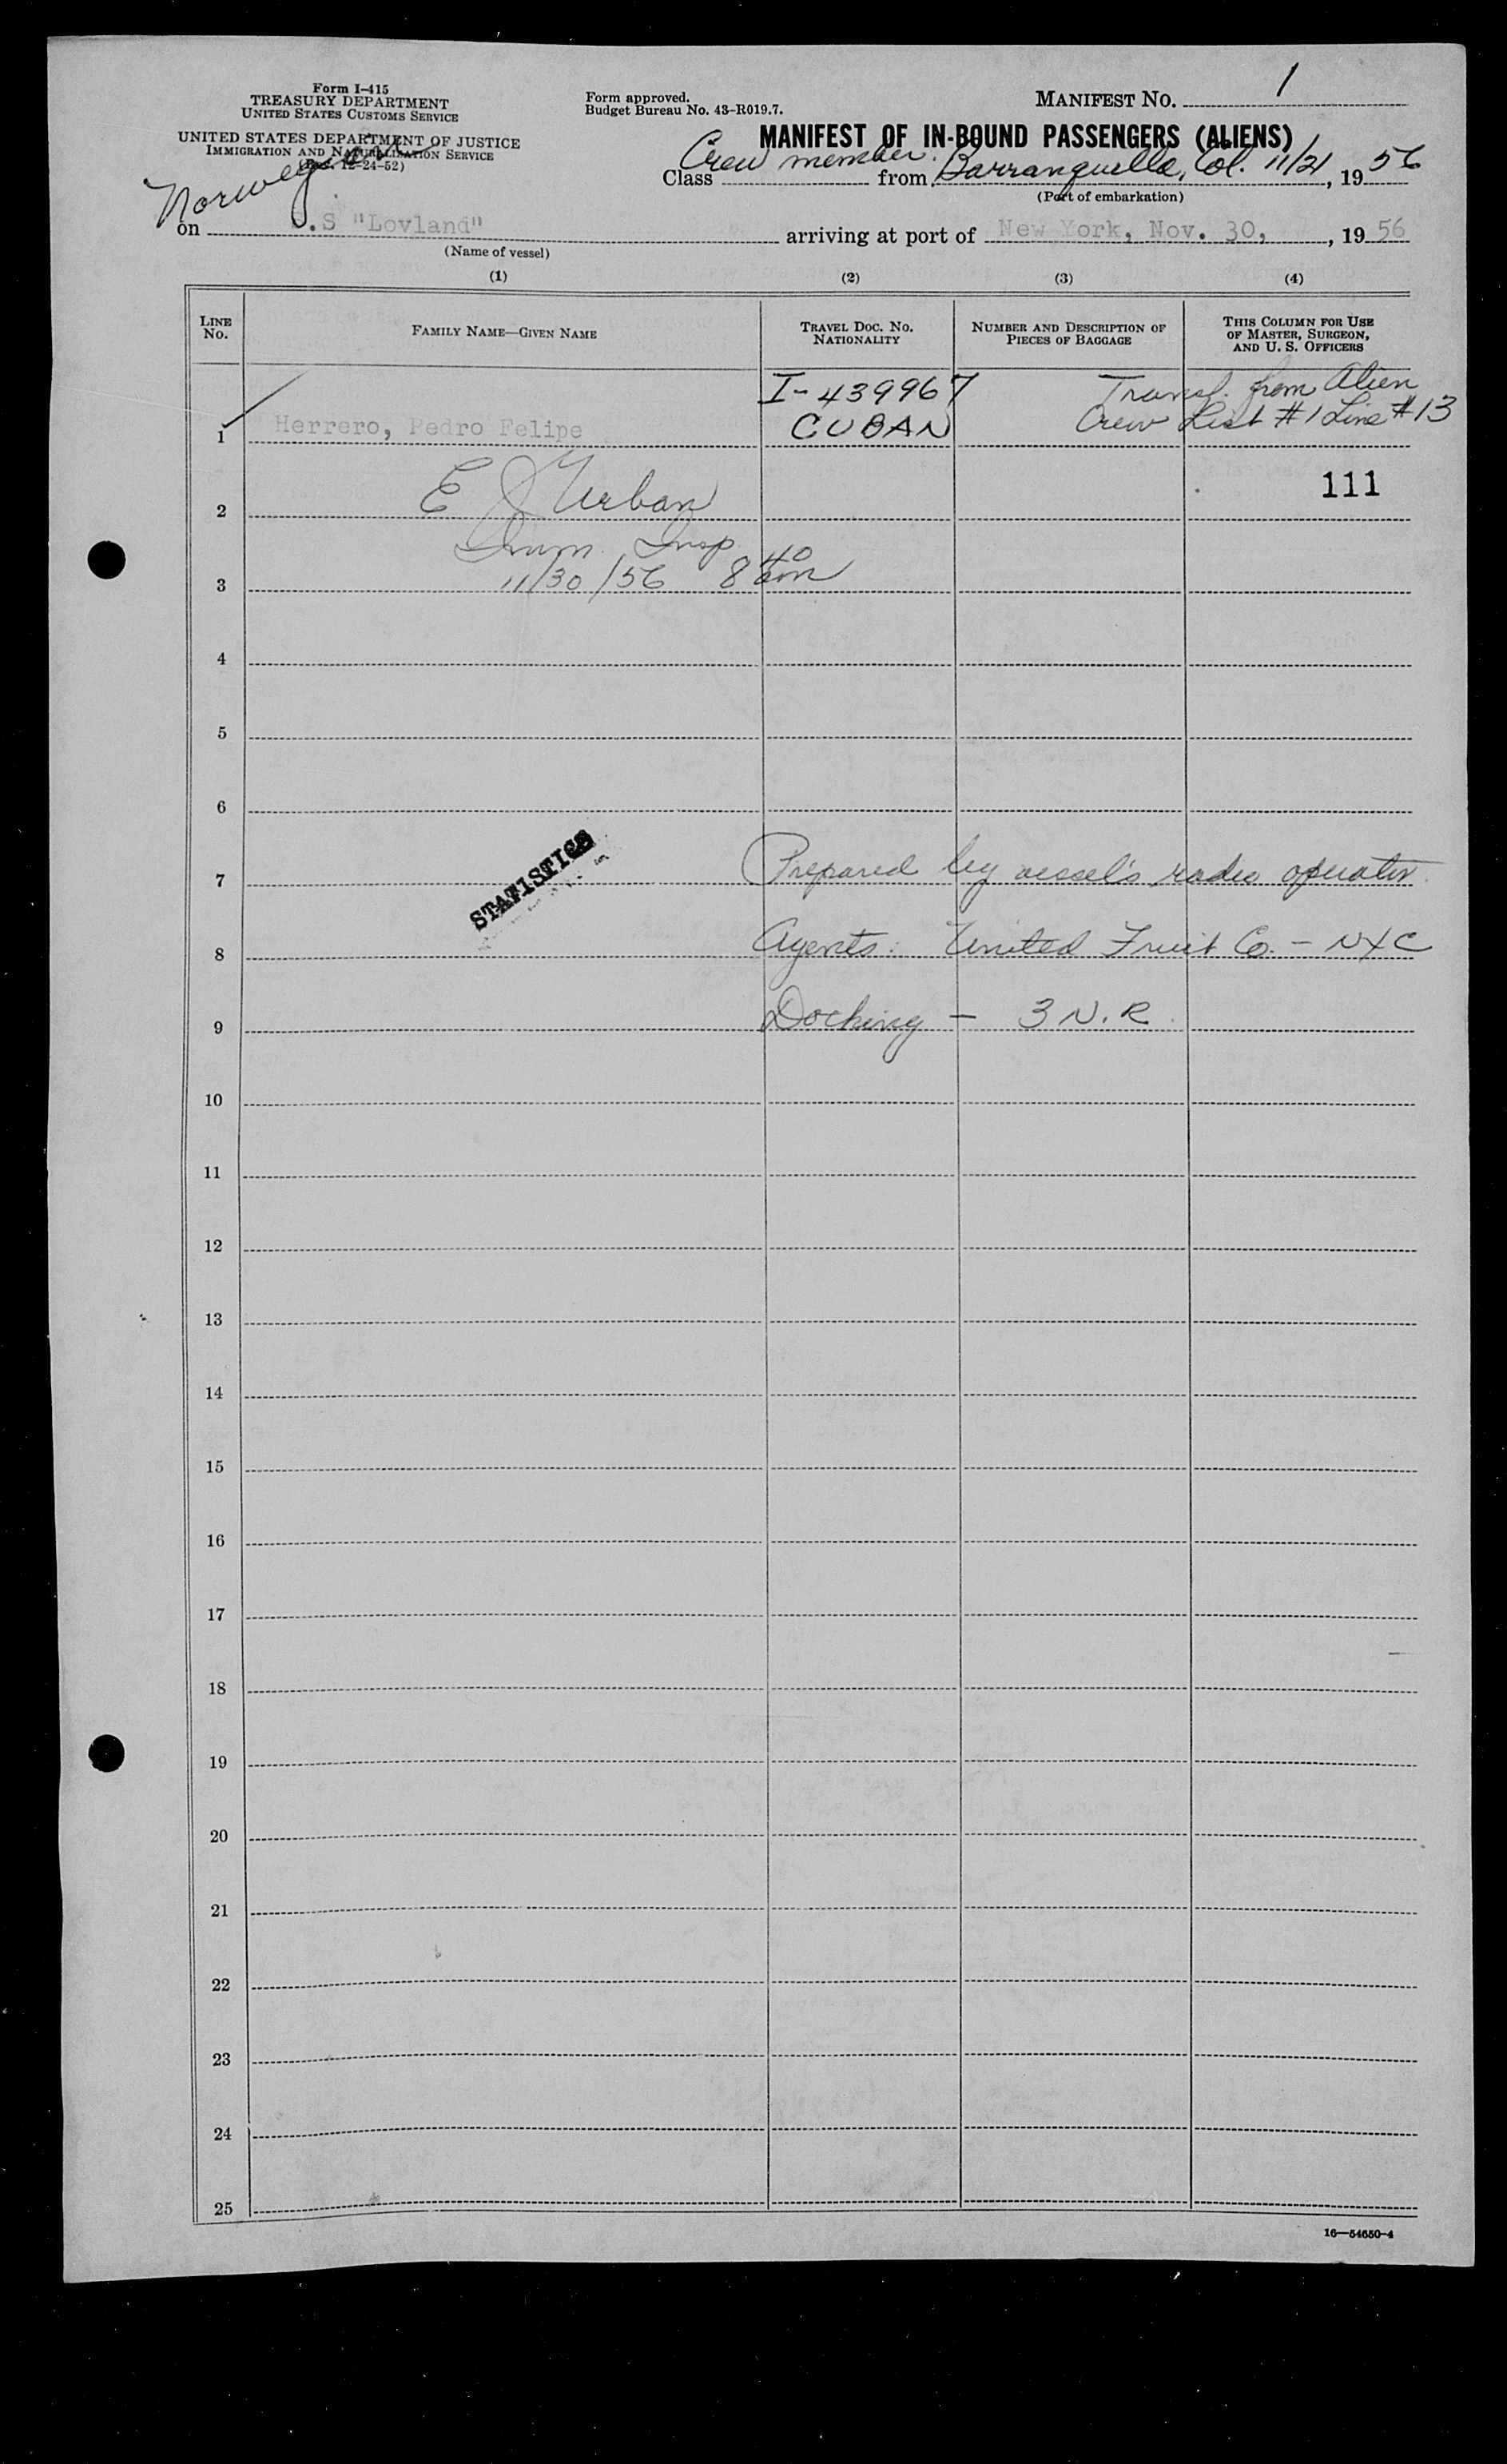 Form I-415
TREASURY DEPARTMENT
UNITED STATES CUSTOMS SERVICE
UNITED STATES DEPARTMENT OF JUSTICE
IMMIGRATION AND NATURALIZATION SERVICE
12-24-52)
Form approved.
Budget Bureau No. 43-R019.7.
MANIFEST NO. 1
MANIFEST OF IN-BOUND PASSENGERS (ALIENS)
Class Crew member. from Barranquilla, Col. 11/21, 1956
(Port of embarkation)
Norwegian
on .S "Lovland" arriving at port of New York, Nov. 30, , 19 56
(Name of vessel)
(1) (2) (3) (4)
LINE NO.
FAMILY NAME—GIVEN NAME
TRAVEL DOC. NO. NATIONALITY
NUMBER AND DESCRIPTION OF PIECES OF BAGGAGE
THIS COLUMN FOR USE OF MASTER, SURGEON, AND U. S. OFFICERS
I-439967 Transf. from Alien
1 Herrero, Pedro Felipe CUBAN Crew List #1 Line #13
111
2 E J Urban
Imm. Insp.
3 11/30/56 8 40 am
4
5
6
STATISTICS
7 Prepared by vessel's radio operator.
8 Agents: United Fruit Co. - NYC
9 Docking - 3 N.R.
10
11
12
13
14
15
16
17
18
19
20
21
22
23
24
25
16—54650-4